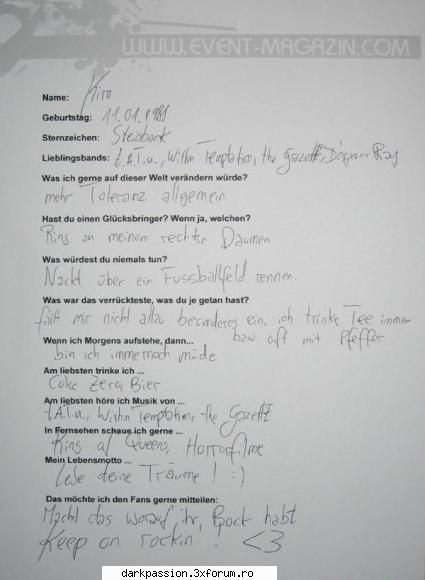 WWW.EVENT-MAGAZIN.COM
Name: Kiro
Geburtstag: 11.01.1981
Sternzeichen: Steinbock
Lieblingsbands: t.A.T.u., Within Temptation, the GazettE, D'espairs Ray
Was ich gerne auf dieser Welt verändern würde?
mehr Toleranz allgemein
Hast du einen Glücksbringer? Wenn ja, welchen?
Ring an meinem rechten Daumen
Was würdest du niemals tun?
Nackt über ein Fussballfeld rennen.
Was war das verrückteste, was du je getan hast?
fällt mir nicht allzu besonderes ein, ich trinke Tee immer
bzw. oft mit Pfeffer
Wenn ich Morgens aufstehe, dann...
bin ich immernoch müde
Am liebsten trinke ich ...
Coke Zero Bier
Am liebsten höre ich Musik von ...
t.A.T.u, Within Temptation, the GazettE
In Fernsehen schaue ich gerne ...
King of Queens, Horrorfilme
Mein Lebensmotto ...
Lebe deine Träume! :)
Das möchte ich den Fans gerne mitteilen:
Macht das worauf ihr Bock habt
Keep on rockin! <3
darkpassion.3xforum.ro